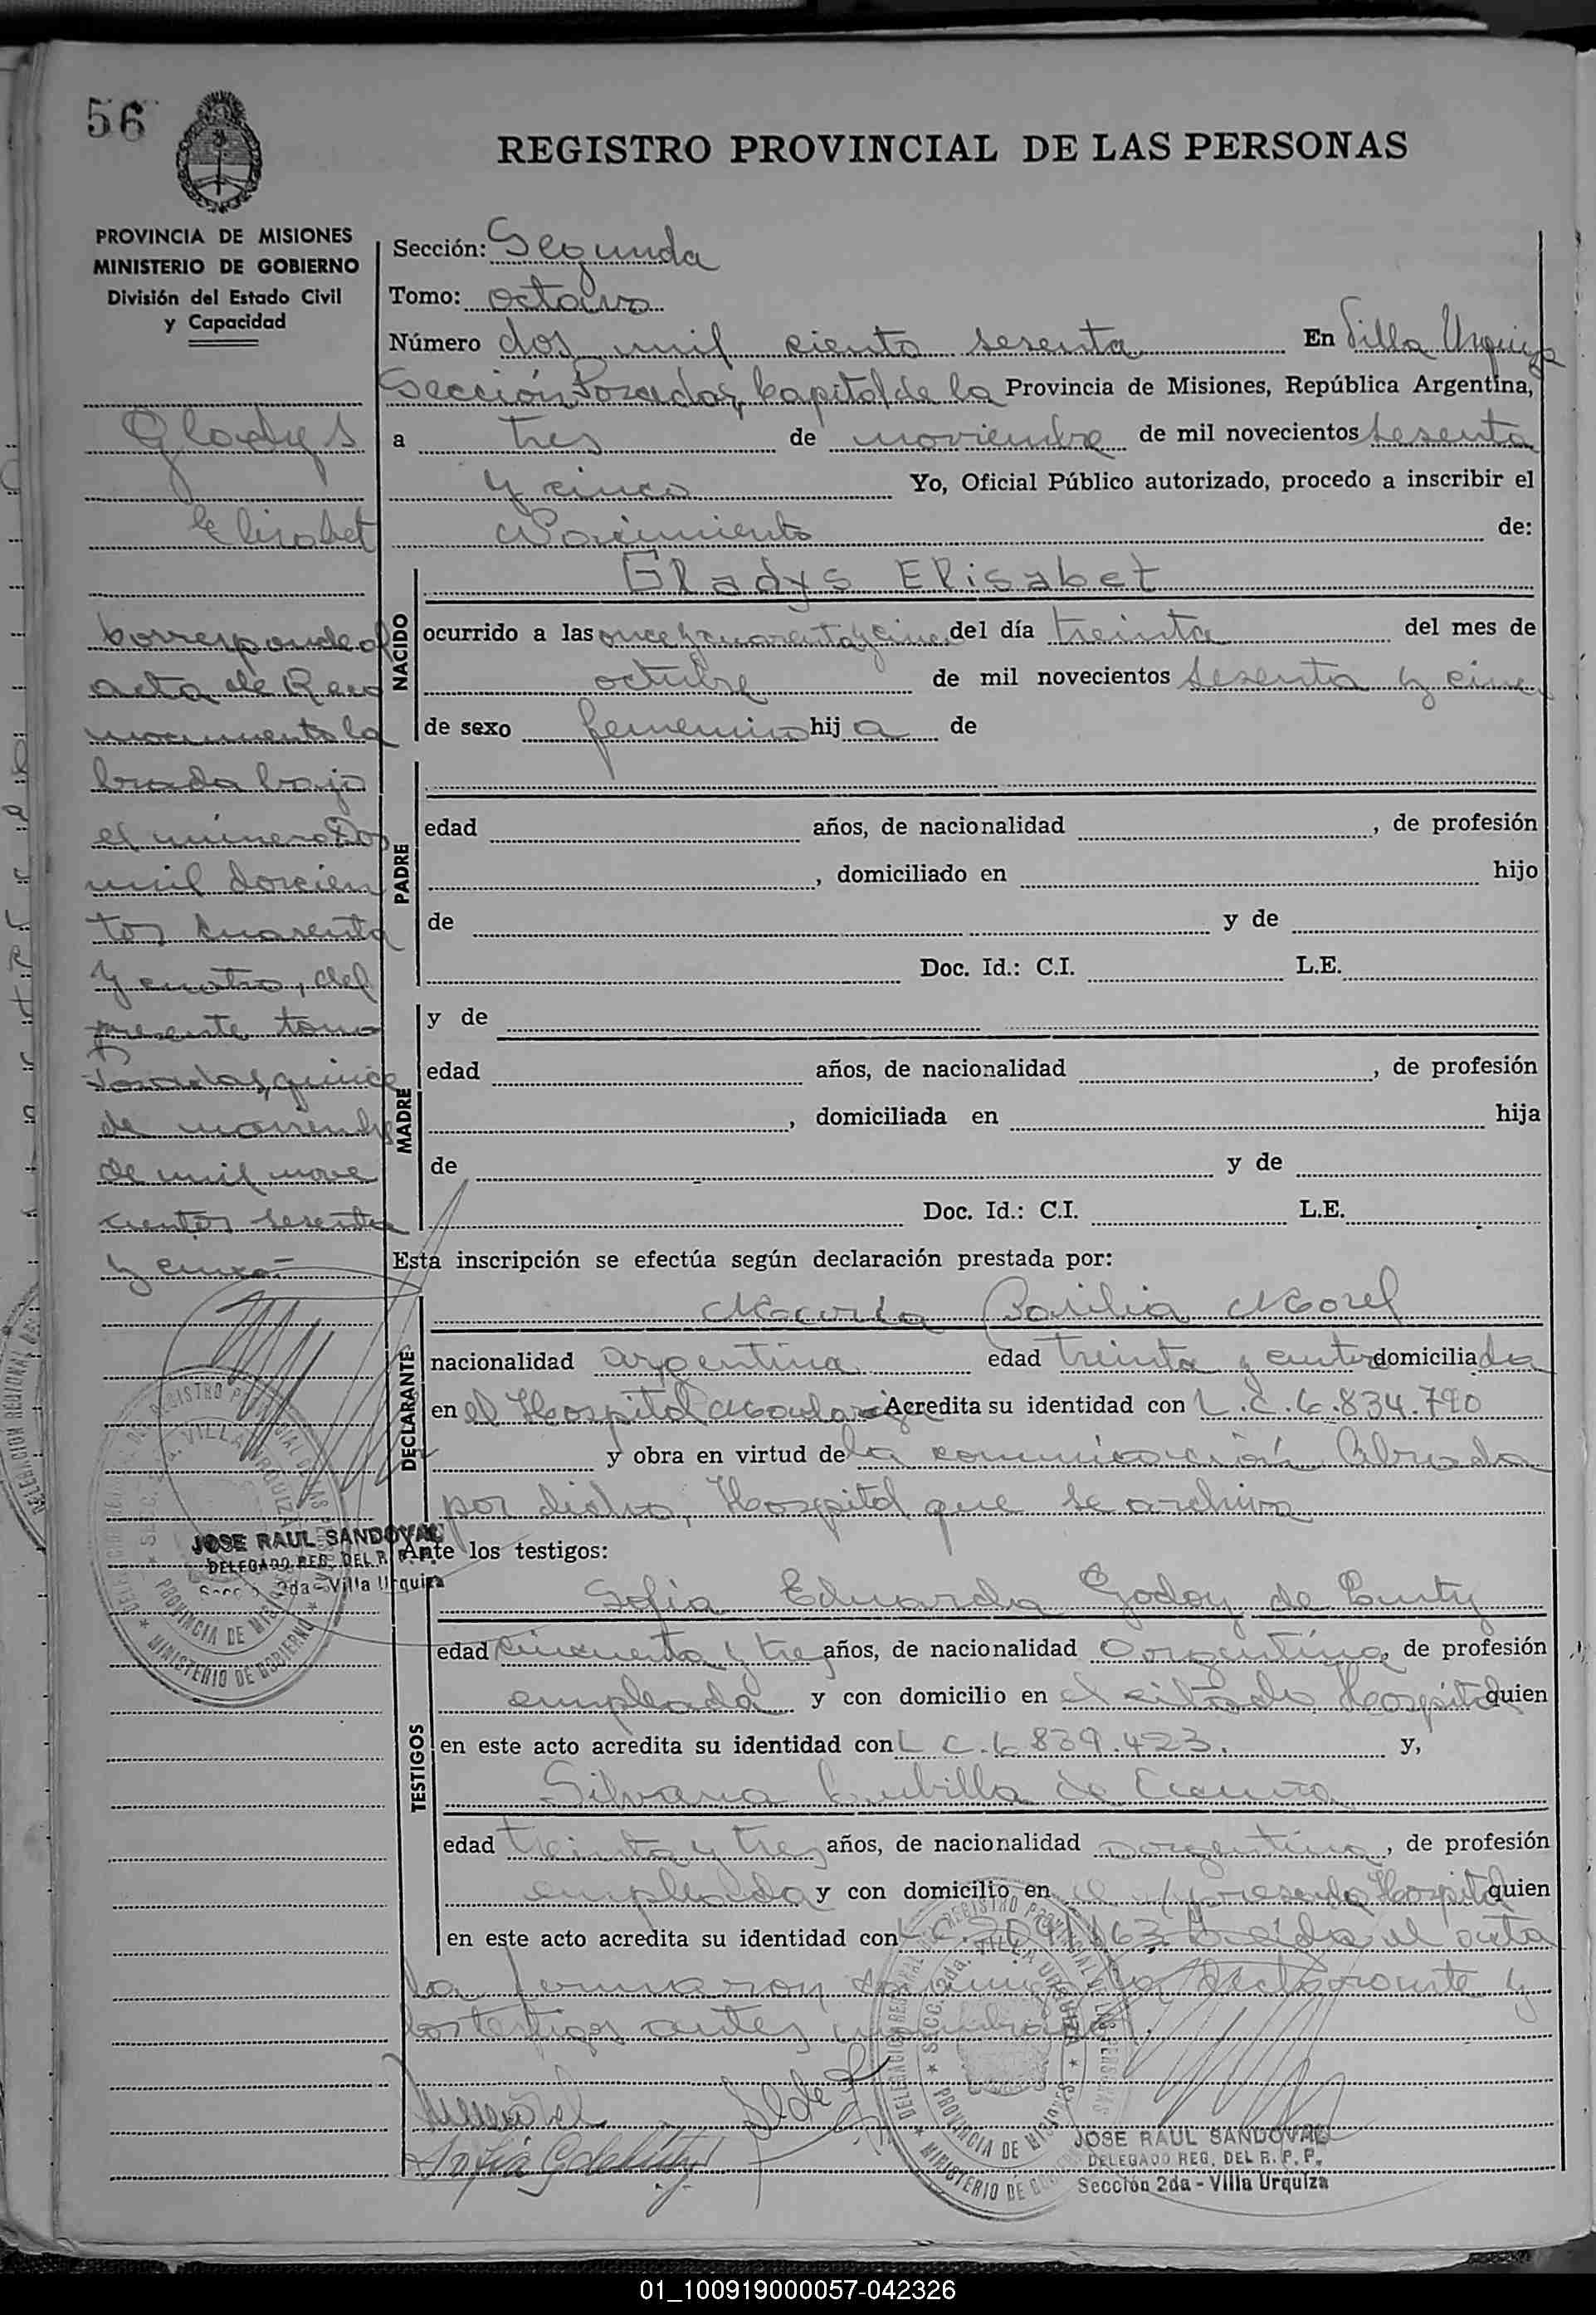 56
REGISTRO PROVINCIAL DE LAS PERSONAS
PROVINCIA DE MISIONES
MINISTERIO DE GOBIERNO
División del Estado Civil
y Capacidad
Gladys
Elisabet
Corresponde al
acta de Reco
nocimiento la
brada bajo
el número Dos
mil doscien
tos cuarenta
y cuatro, del
presente tomo
Posadas, quince
de noviembre
de mil nove
cientos sesenta
y cinco.-
JOSE RAUL SANDOVAL
DELEGADO REG. DEL R. P. P.
Secc 2da - Villa Urquiza
Sección: Segunda
Tomo: octavo
Número dos mil ciento sesenta En Villa Urquiza
Sección Posadas, Capital de la Provincia de Misiones, República Argentina,
a tres de noviembre de mil novecientos sesenta
y cinco Yo, Oficial Público autorizado, procedo a inscribir el
Nacimiento de:
NACIDO
Gladys Elisabet
ocurrido a las once y cuarenta y cinco del día treinta del mes de
octubre de mil novecientos sesenta y cinco
de sexo femenino hija de
PADRE
edad años, de nacionalidad , de profesión
, domiciliado en hijo
de y de
Doc. Id.: C.I. L.E.
MADRE
y de
edad años, de nacionalidad , de profesión
, domiciliada en hija
de y de
Doc. Id.: C.I. L.E.
Esta inscripción se efectúa según declaración prestada por:
DECLARANTE
Basilia Morel
nacionalidad argentina edad treinta y domiciliada
en el Hospital Acredita su identidad con L.C. 6.834.790
y obra en virtud de la comunicación librada
por dicho, Hospital que se archiva
Ante los testigos:
TESTIGOS
Sofia Eduarda Godoy de
edad cincuenta y tres años, de nacionalidad argentina, de profesión
empleada y con domicilio en el citado Hospital quien
en este acto acredita su identidad con L C. 6 839.423. y,
Silvana Cubilla de
edad treinta y tres años, de nacionalidad argentina, de profesión
empleada y con domicilio en el expresado Hospital quien
en este acto acredita su identidad con Leida el acta
la firmaron conmigo la declarante y
los testigos antes
JOSE RAUL SANDOVAL
DELEGADO REG. DEL R. P. P.
Sección 2da - Villa Urquiza
01_100919000057-042326